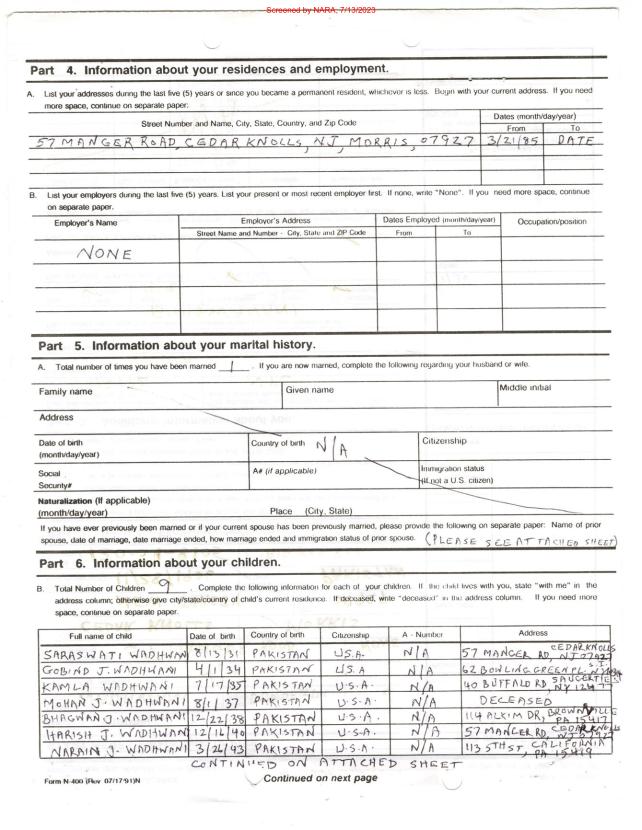 Screened by NARA, 7/13/2023
Part 4. Information about your residences and employment.
A. List your addresses during the last five (5) years or since you became a permanent resident, whichever is less. Begin with your current address. If you need
more space, continue on separate paper:
Street Number and Name, City, State, Country, and Zip Code
Dates (month/day/year)
From To
57 MANGER ROAD, CEDAR KNOLLS, NJ, MORRIS, 07927 3/21/85 DATE
B. List your employers during the last five (5) years. List your present or most recent employer first. If none, write "None". If you need more space, continue
on separate paper.
Employer's Name Employer's Address Dates Employed (month/day/year) Occupation/position
Street Name and Number - City, State and ZIP Code From To
NONE
Part 5. Information about your marital history.
A. Total number of times you have been married 1 . If you are now married, complete the following regarding your husband or wife.
Family name Given name Middle initial
Address
Date of birth
(month/day/year) Country of birth N/A Citizenship
Social
Security# A# (if applicable) Immigration status
(If not a U.S. citizen)
Naturalization (If applicable)
(month/day/year) Place (City, State)
If you have ever previously been married or if your current spouse has been previously married, please provide the following on separate paper: Name of prior
spouse, date of marriage, date marriage ended, how marriage ended and immigration status of prior spouse. (PLEASE SEE ATTACHED SHEET)
Part 6. Information about your children.
B. Total Number of Children 9 . Complete the following information for each of your children. If the child lives with you, state "with me" in the
address column; otherwise give city/state/country of child's current residence. If deceased, write "deceased" in the address column. If you need more
space, continue on separate paper.
Full name of child Date of birth Country of birth Citizenship A - Number Address
SARASWATI WADHWANI 8/13/31 PAKISTAN U.S.A. N/A 57 MANGER RD, CEDAR KNOLLS NJ 07927
GOBIND J. WADHWANI 4/1/34 PAKISTAN U.S.A N/A 62 BOWLING GREEN PL. S.I.
KAMLA WADHWANI 7/17/35 PAKISTAN U.S.A. N/A 40 BUFFALO RD, SAUGERTIES NY 12477
MOHAN J. WADHWANI 8/1/37 PAKISTAN U.S.A. N/A DECEASED
BHAGWAN J. WADHWANI 12/22/38 PAKISTAN U.S.A. N/A 114 ALKIM DR, BROWNVILLE PA 15417
HARISH J. WADHWANI 12/16/40 PAKISTAN U.S.A. N/A 57 MANGER RD, CEDAR KNOLLS NJ 07927
NARAIN J. WADHWANI 3/26/43 PAKISTAN U.S.A. N/A 113 5TH ST, CALIFORNIA PA 15419
CONTINUED ON ATTACHED SHEET
Form N-400 (Rev 07/17/91)N Continued on next page